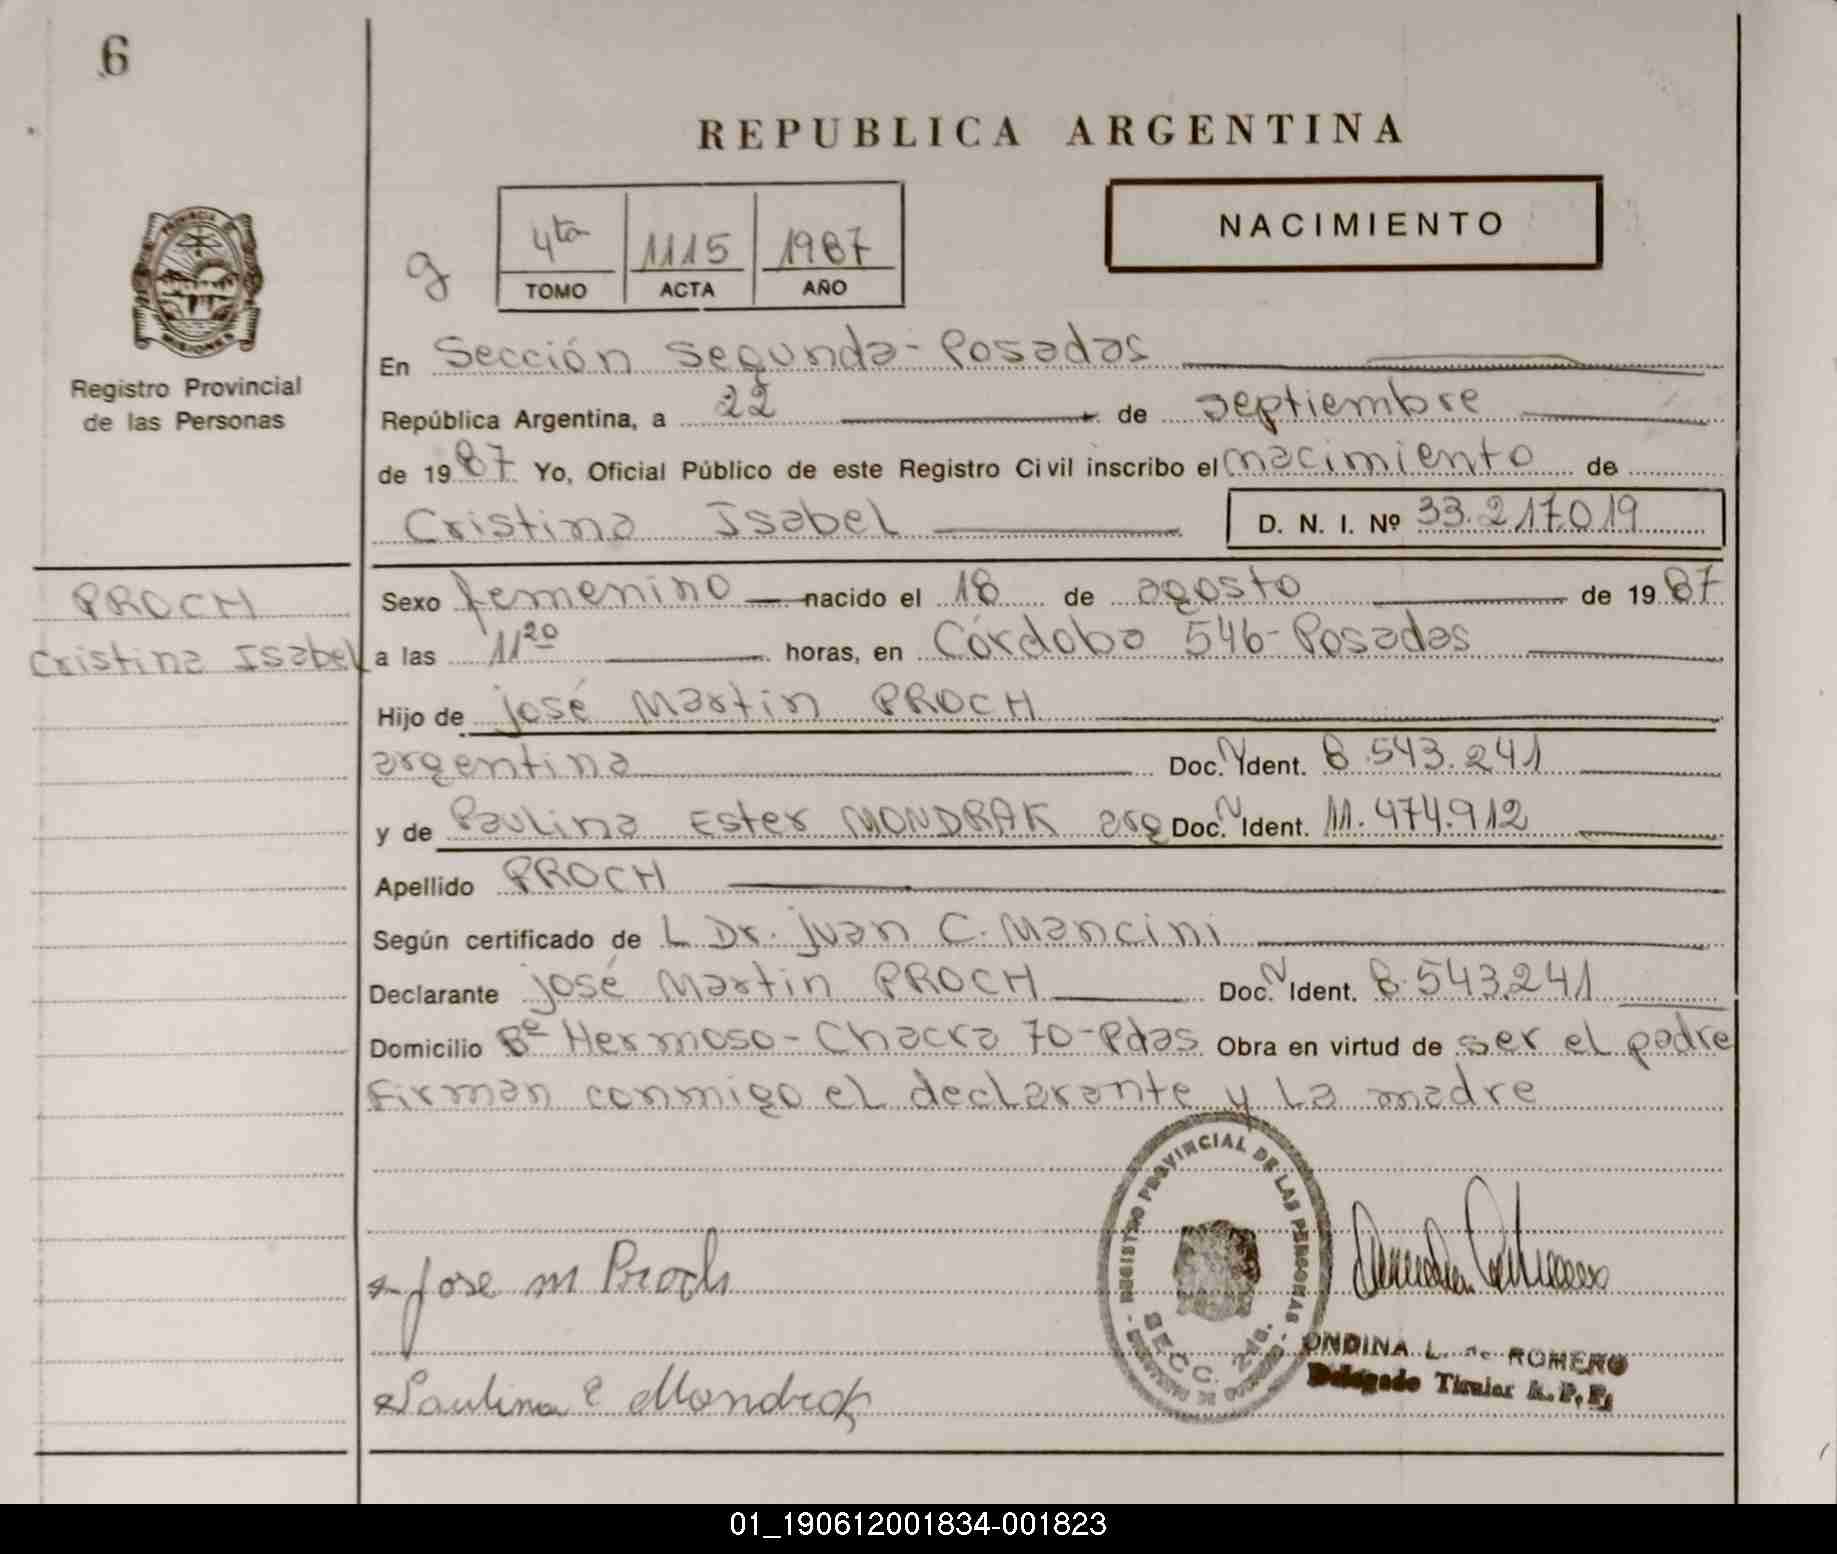 6
REPUBLICA ARGENTINA
NACIMIENTO
g
4ta 1115 1987
TOMO ACTA AÑO
PROVINCIA
MISIONES
Registro Provincial
de las Personas
En Sección Segunda - Posadas
República Argentina, a 22 de septiembre
de 1987 Yo, Oficial Público de este Registro Civil inscribo el nacimiento de
Cristina Isabel D. N. I. Nº 33.217.019
PROCH
Cristina Isabel
Sexo femenino nacido el 18 de agosto de 1987
a las 11 20 horas, en Córdoba 546 - Posadas
Hijo de josé Martin PROCH
argentina Doc. N Ident. 8.543.241
y de Paulina Ester MONDRAK arg Doc. N Ident. 11.474.912
Apellido PROCH
Según certificado de L Dr. juan C. Mancini
Declarante josé Martin PROCH Doc. N Ident. 8.543.241
Domicilio Bº Hermoso - Chacra 70 - Pdas Obra en virtud de ser el padre
Firman conmigo el declarante y La madre
REGISTRO PROVINCIAL DE LAS PERSONAS
SECC. 2da.
Jose M Proch
ONDINA L. de ROMERO
Delegado Titular R. P. P.
Paulina E Mondrak
01_190612001834-001823